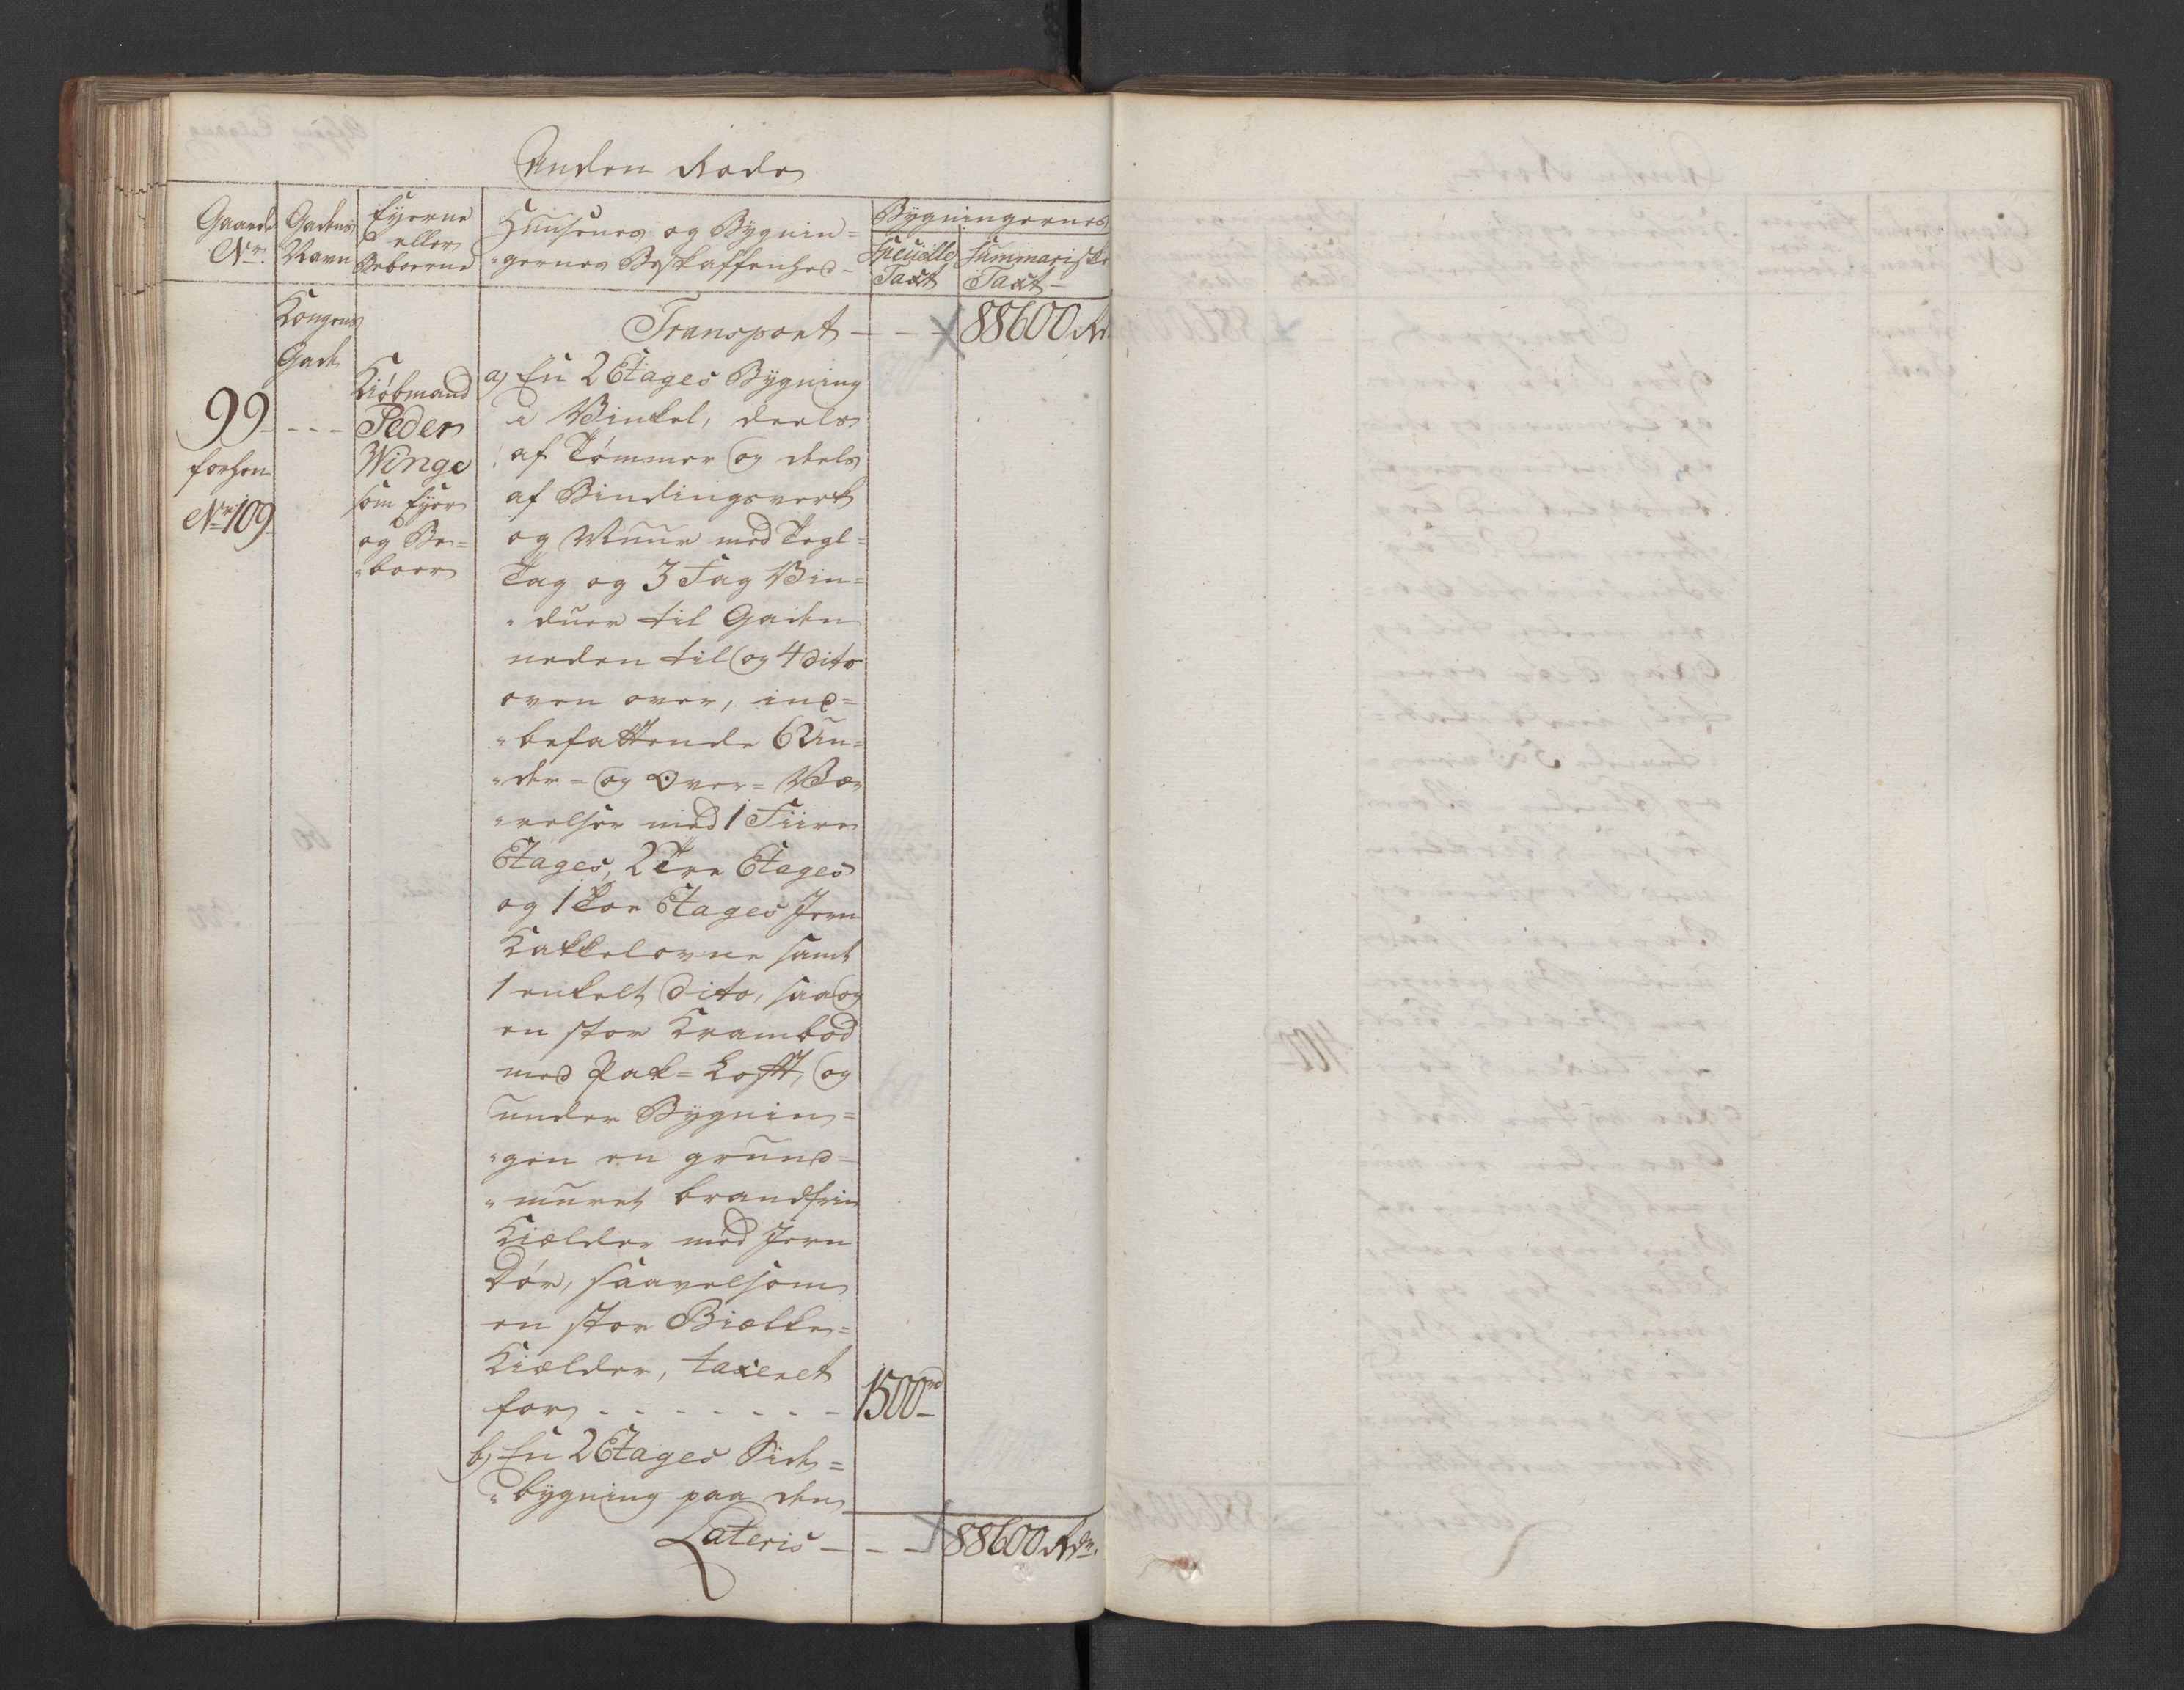 Anden Rode
Gaards Nr.
Gadens Navn
Eyerne eller Beboerne
Huusenes og Bygnin=
"gernes Beskaffenhed
Bygningernes
Specielle Taxt
Summariske Taxt
Kongens
Gade
Transport - - - 88600 Rd.
99 - - -
forhen
No. 109
Kiøbmand
Peder
Winge
som Eyer
og Be=
"boer
a) En 2 Etages Bygning
i Vinkel, deels
af Tømmer og deels
af Bindingsverk
og Muur med Tegl=
Tag og 3 Fag Vin=
"duer til Gaden
neden til og 4 dito
oven over, ind=
"befattende 6 Un=
"der= og Over= Væ=
"relser med 1 Fiire
Etages, 2 Tre Etages
og 1 Toe Etages Jern
Kakkelovne samt
1 enkelt dito, saa og
en stor Krambod
med Pak= Lofft, og
under Bygnin=
"gen en grund=
"muret brandfrie
Kielder med Jern
Dør, saavelsom
en stor Bielke=
Kielder, taxeret
for - - - - - - - 1500 rd
b) En 2 Etages Side=
"bygning paa den
Lateris - - - 88600 Rdr.